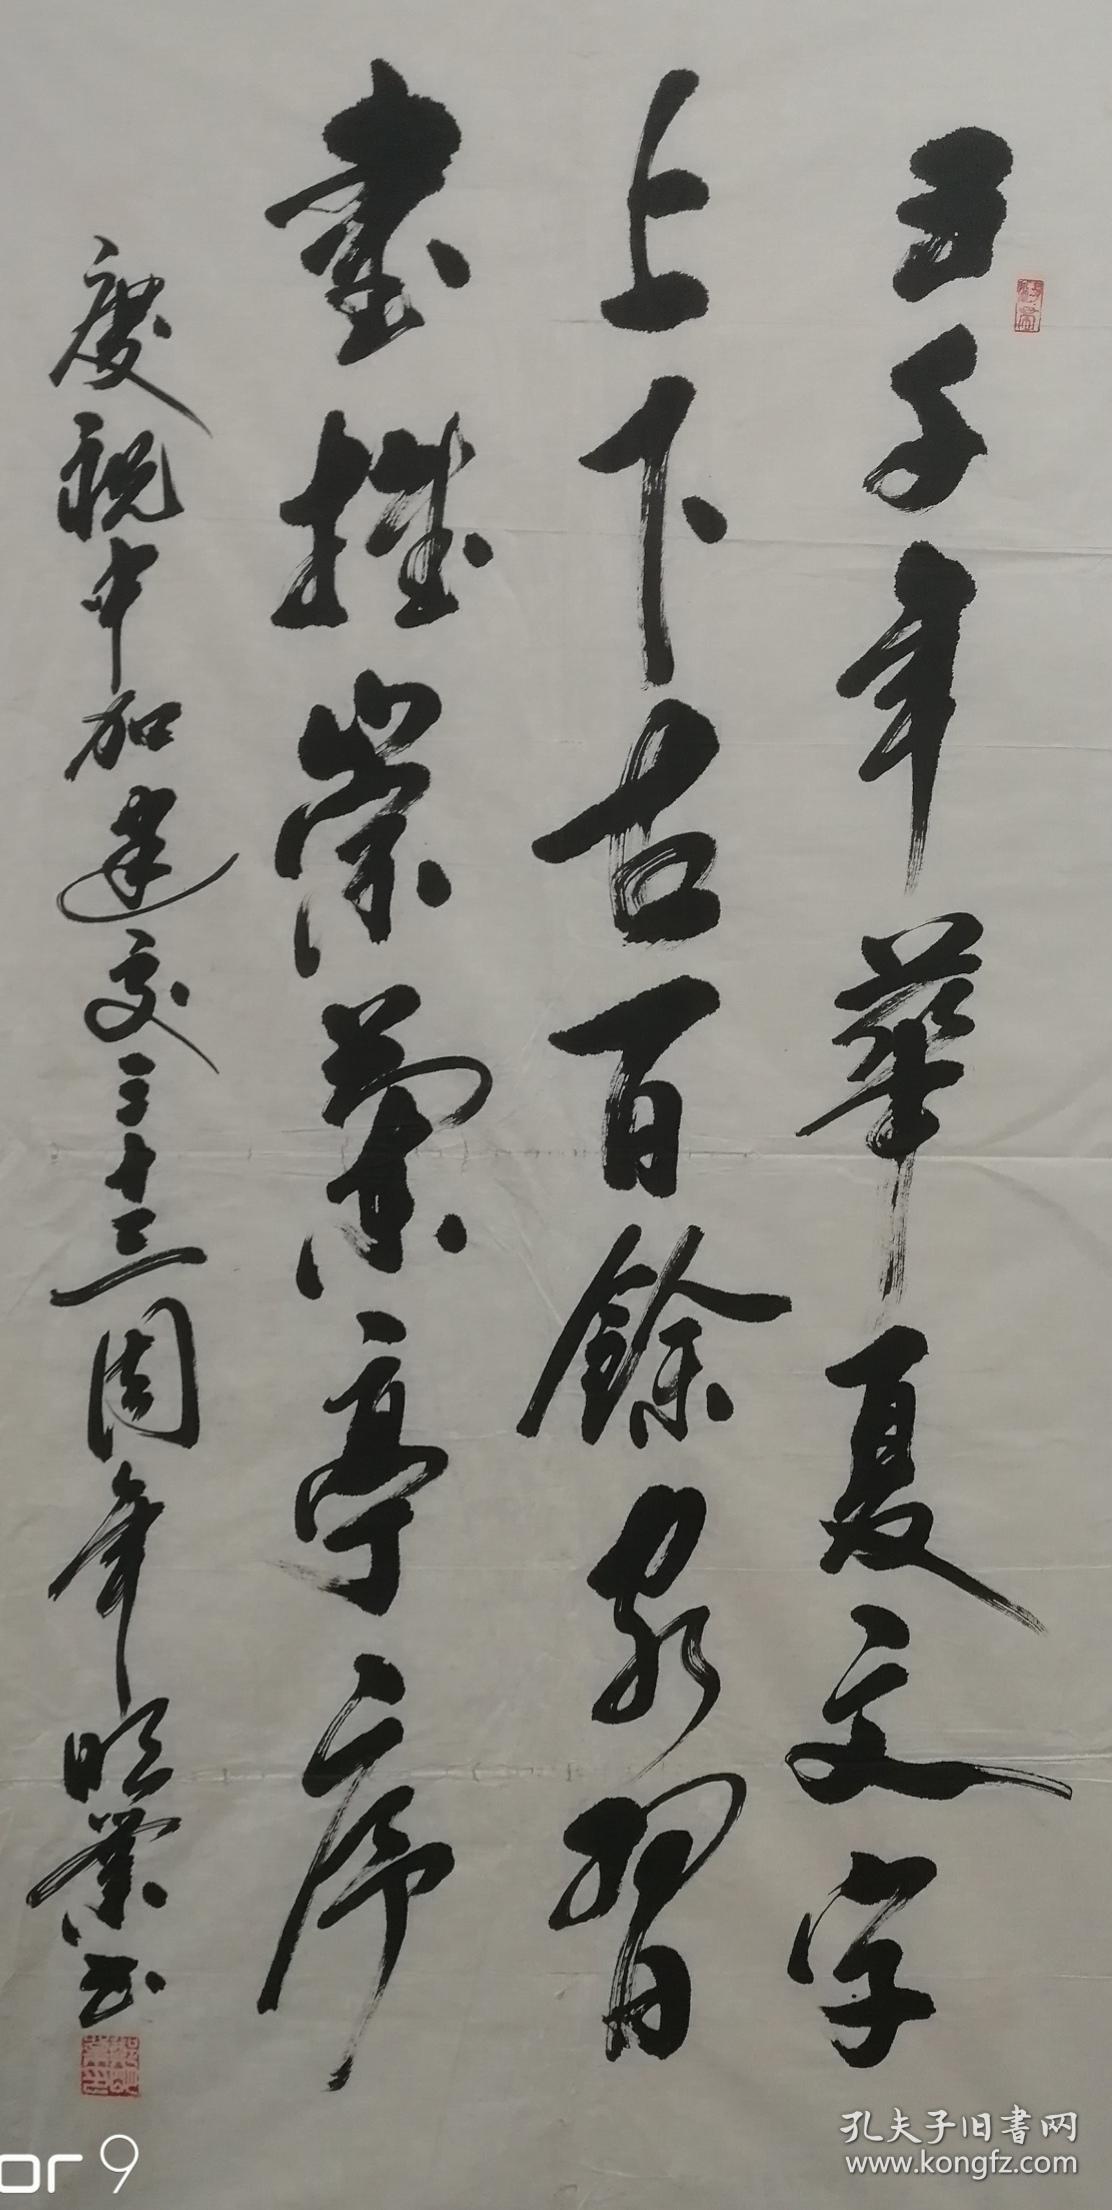 五千年華夏文字
上下古百餘家習
書推崇蘭亭序
慶祝中加建交三十三周年
明業书
孔夫子旧書网
www.kongfz.com
or 9